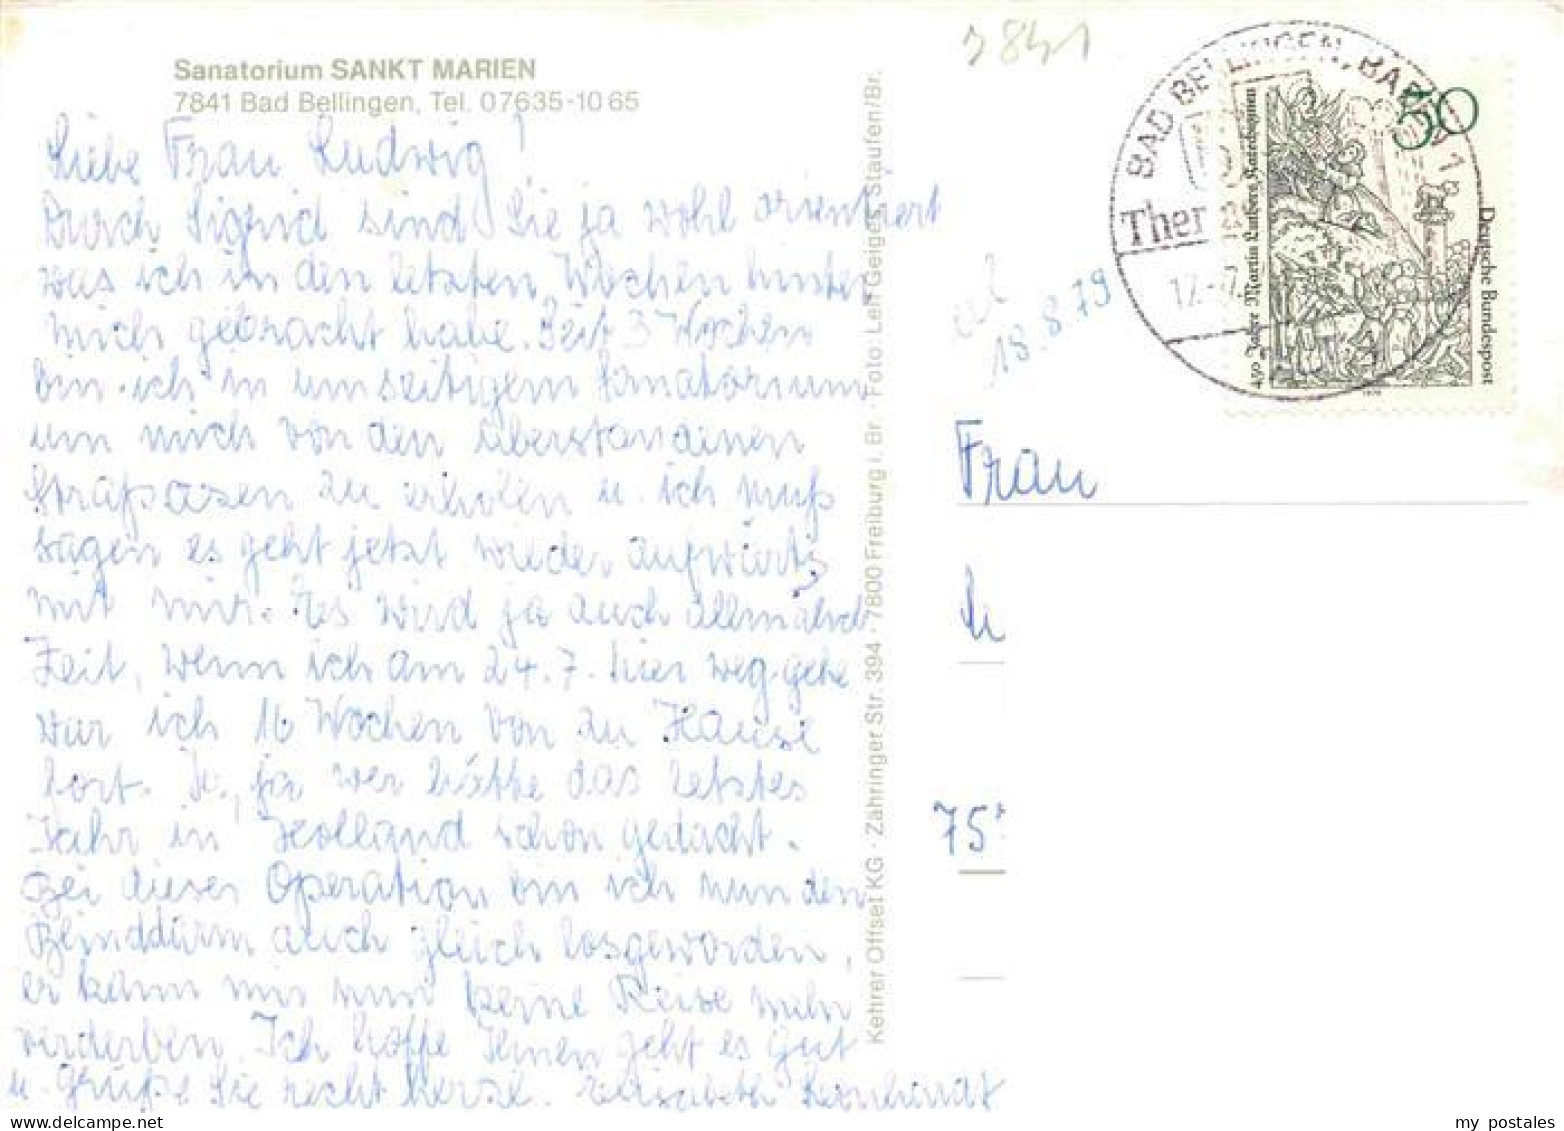 Sanatorium SANKT MARIEN
7841 Bad Bellingen, Tel. 07635-10 65
Liebe Frau Ludwig!
Durch Sigrid sind Sie ja wohl orientiert
was ich in den letzten Wochen hinter
mich gebracht habe. Seit 3 Wochen
bin ich in umseitigem Sanatorium
um mich von den überstandenen
Strapazen zu erholen u. ich muß
sagen es geht jetzt wieder aufwärts
mit mir. Es wird ja auch allmählich
Zeit, wenn ich am 24.7. hier weg gehe
war ich 16 Wochen von zu Hause
fort. Ja, ja wer hätte das letztes
Jahr in Holland schon gedacht.
Bei dieser Operation bin ich nun den
Blinddarm auch gleich losgeworden,
er kann mir nun keine Reise mehr
verderben. Ich hoffe Ihnen geht es gut
u. grüße Sie recht herzl. Elisabeth Leonhardt
Kehrer Offset KG · Zähringer Str. 394 · 7800 Freiburg i. Br. · Foto: Leif Geiges, Staufen/Br.
7841
BAD BELLINGEN, BADEN 1
Ther
12.-7.
50
450 Jahre Martin Luthers Katechismen
Deutsche Bundespost
1979
18.8.79
Frau
75
my postales